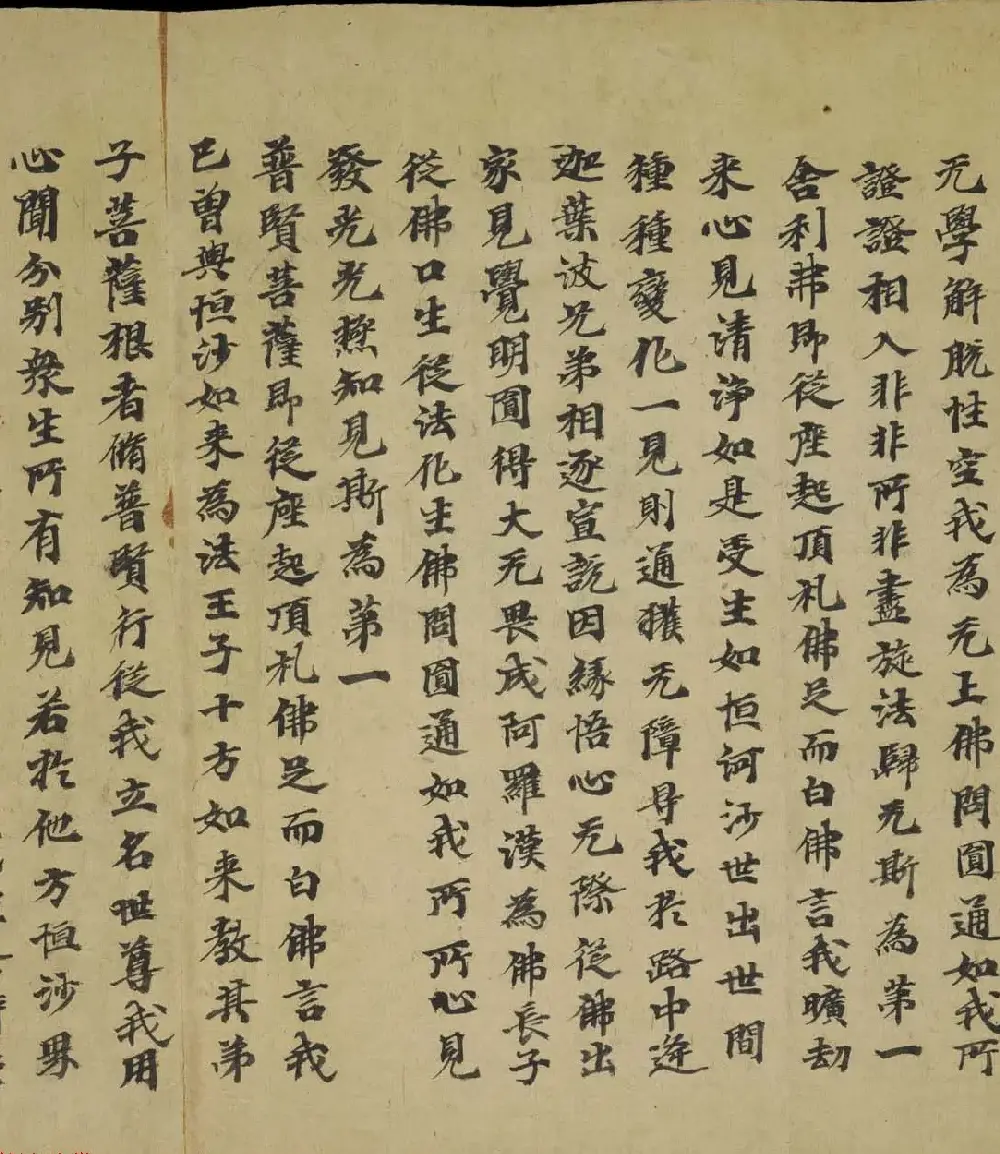 无學解脫性空我為无上佛問圓通如我所
證證相入非非所非盡旋法歸无斯為第一
舍利弗即從座起頂礼佛足而白佛言我曠劫
来心見清淨如是受生如恒河沙世出世間
種種變化一見則通獲无障导我於路中逢
迦葉波兄弟相逐宣說因緣悟心无際從佛出
家見覺明圓得大无畏成阿羅漢為佛長子
從佛口生從法化生佛問圓通如我所所心見
發光光極知見斯為第一
普賢菩薩即從座起頂礼佛足而白佛言我
已曾與恒沙如来為法王子十方如来教其弟
子菩薩根者脩普賢行從我立名世尊我用
心聞分别衆生所有知見若於他方恒沙界